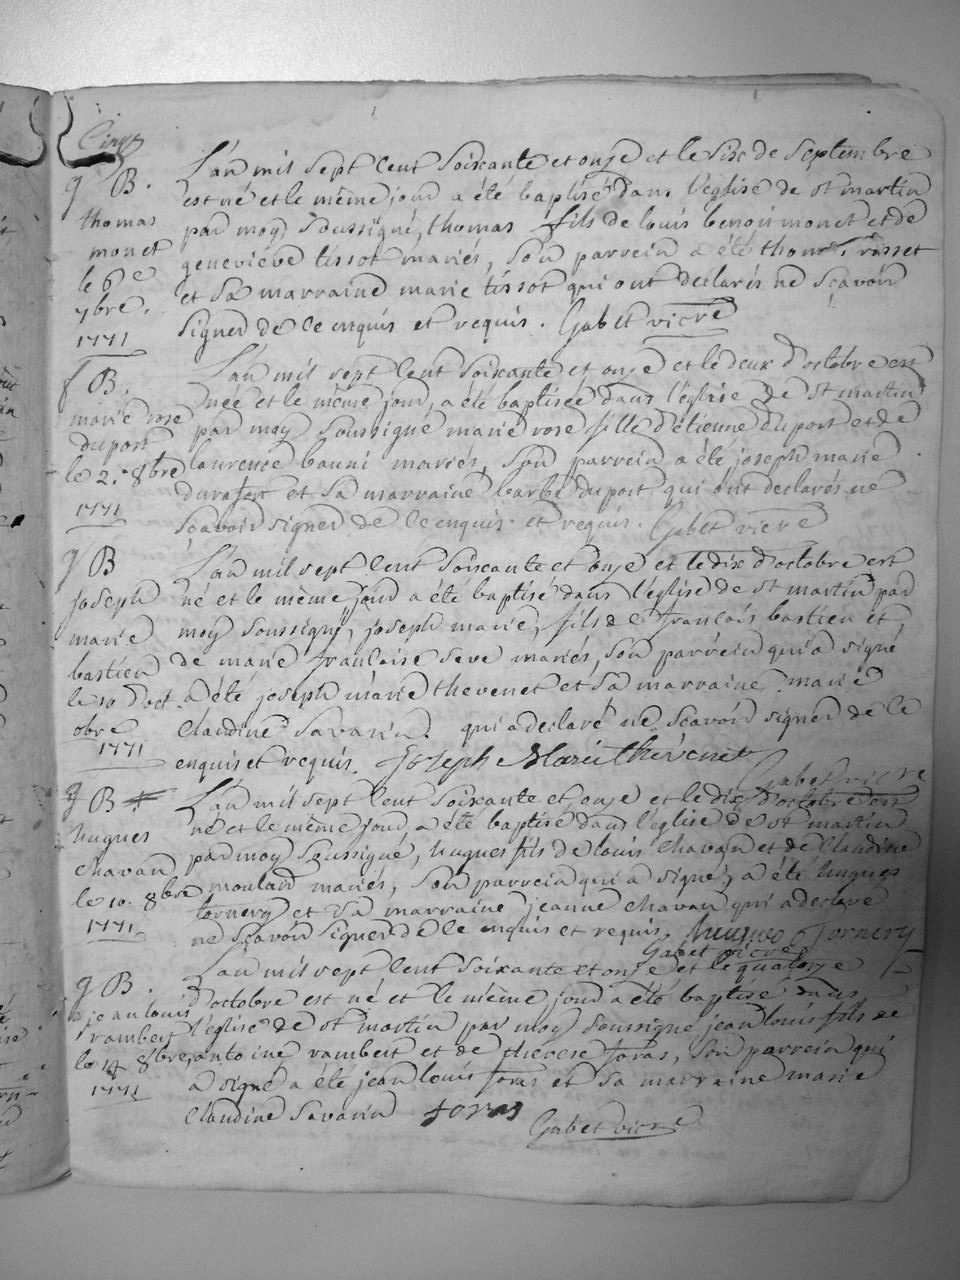 Cinq
g B.
thomas
monet
le 6e
7bre.
1771
L'an mil sept cent soixante et onze et le six de septembre
est né et le même jour a été baptisé dans l'église de st martin
par moy soussigné, thomas fils de louis benoit monet et de
geneviève tissot mariés, son parrein a été thomas rosset
et sa marraine marie tissot qui ont declarés ne scavoir
signer de ce enquis et requis. Gabet vicre
f B.
marie rose
duport
le 2. 8bre
1771
L'an mil sept cent soixante et onze et le deux d'octobre est
née et le même jour, a été baptisée dans l'église de st martin
par moy soussigné marie rose fille d'etienne duport et de
laurence mariés, son parrein a été joseph marie
durafort et sa marraine barbe duport qui ont declarés ne
scavoir signer de ce enquis et requis. Gabet vicre
g B
joseph
marie
bastien
le 10 d'oct
obre
1771
L'an mil sept cent soixante et onze et le dix d'octobre est
né et le même jour a été baptisé dans l'église de st martin par
moy soussigné, joseph marie, fils de françois bastien et,
de marie françoise seve mariés, son parrein qui a signé
a été joseph marie thevenet et sa marraine marie
claudine savarin. qui a declaré ne scavoir signer de ce
enquis et requis. Joseph Marie thévenet
Gabet vicre
g B
hugues
chavan
le 10. 8bre
1771
L'an mil sept cent soixante et onze et le dix d'octobre est
né et le même jour, a été baptisé dans l'église de st martin
par moy soussigné, hugues fils de louis chavan et de claudine
moulard mariés, son parrein qui a signé, a été hugues
tornery et sa marraine jeanne chavan qui a declaré
ne scavoir signer de ce enquis et requis. hugues Tornery
Gabet vicre
g B.
jean louis
rambert
le 14 8bre
1771
L'an mil sept cent soixante et onze et le quatorze
d'octobre est né et le même jour a été baptisé dans
l'église de st martin par moy soussigné jean louis fils de
antoine rambert et de therese foras, son parrein qui
a signé a été jean louis foras et sa marraine marie
claudine savarin foras
Gabet vicre